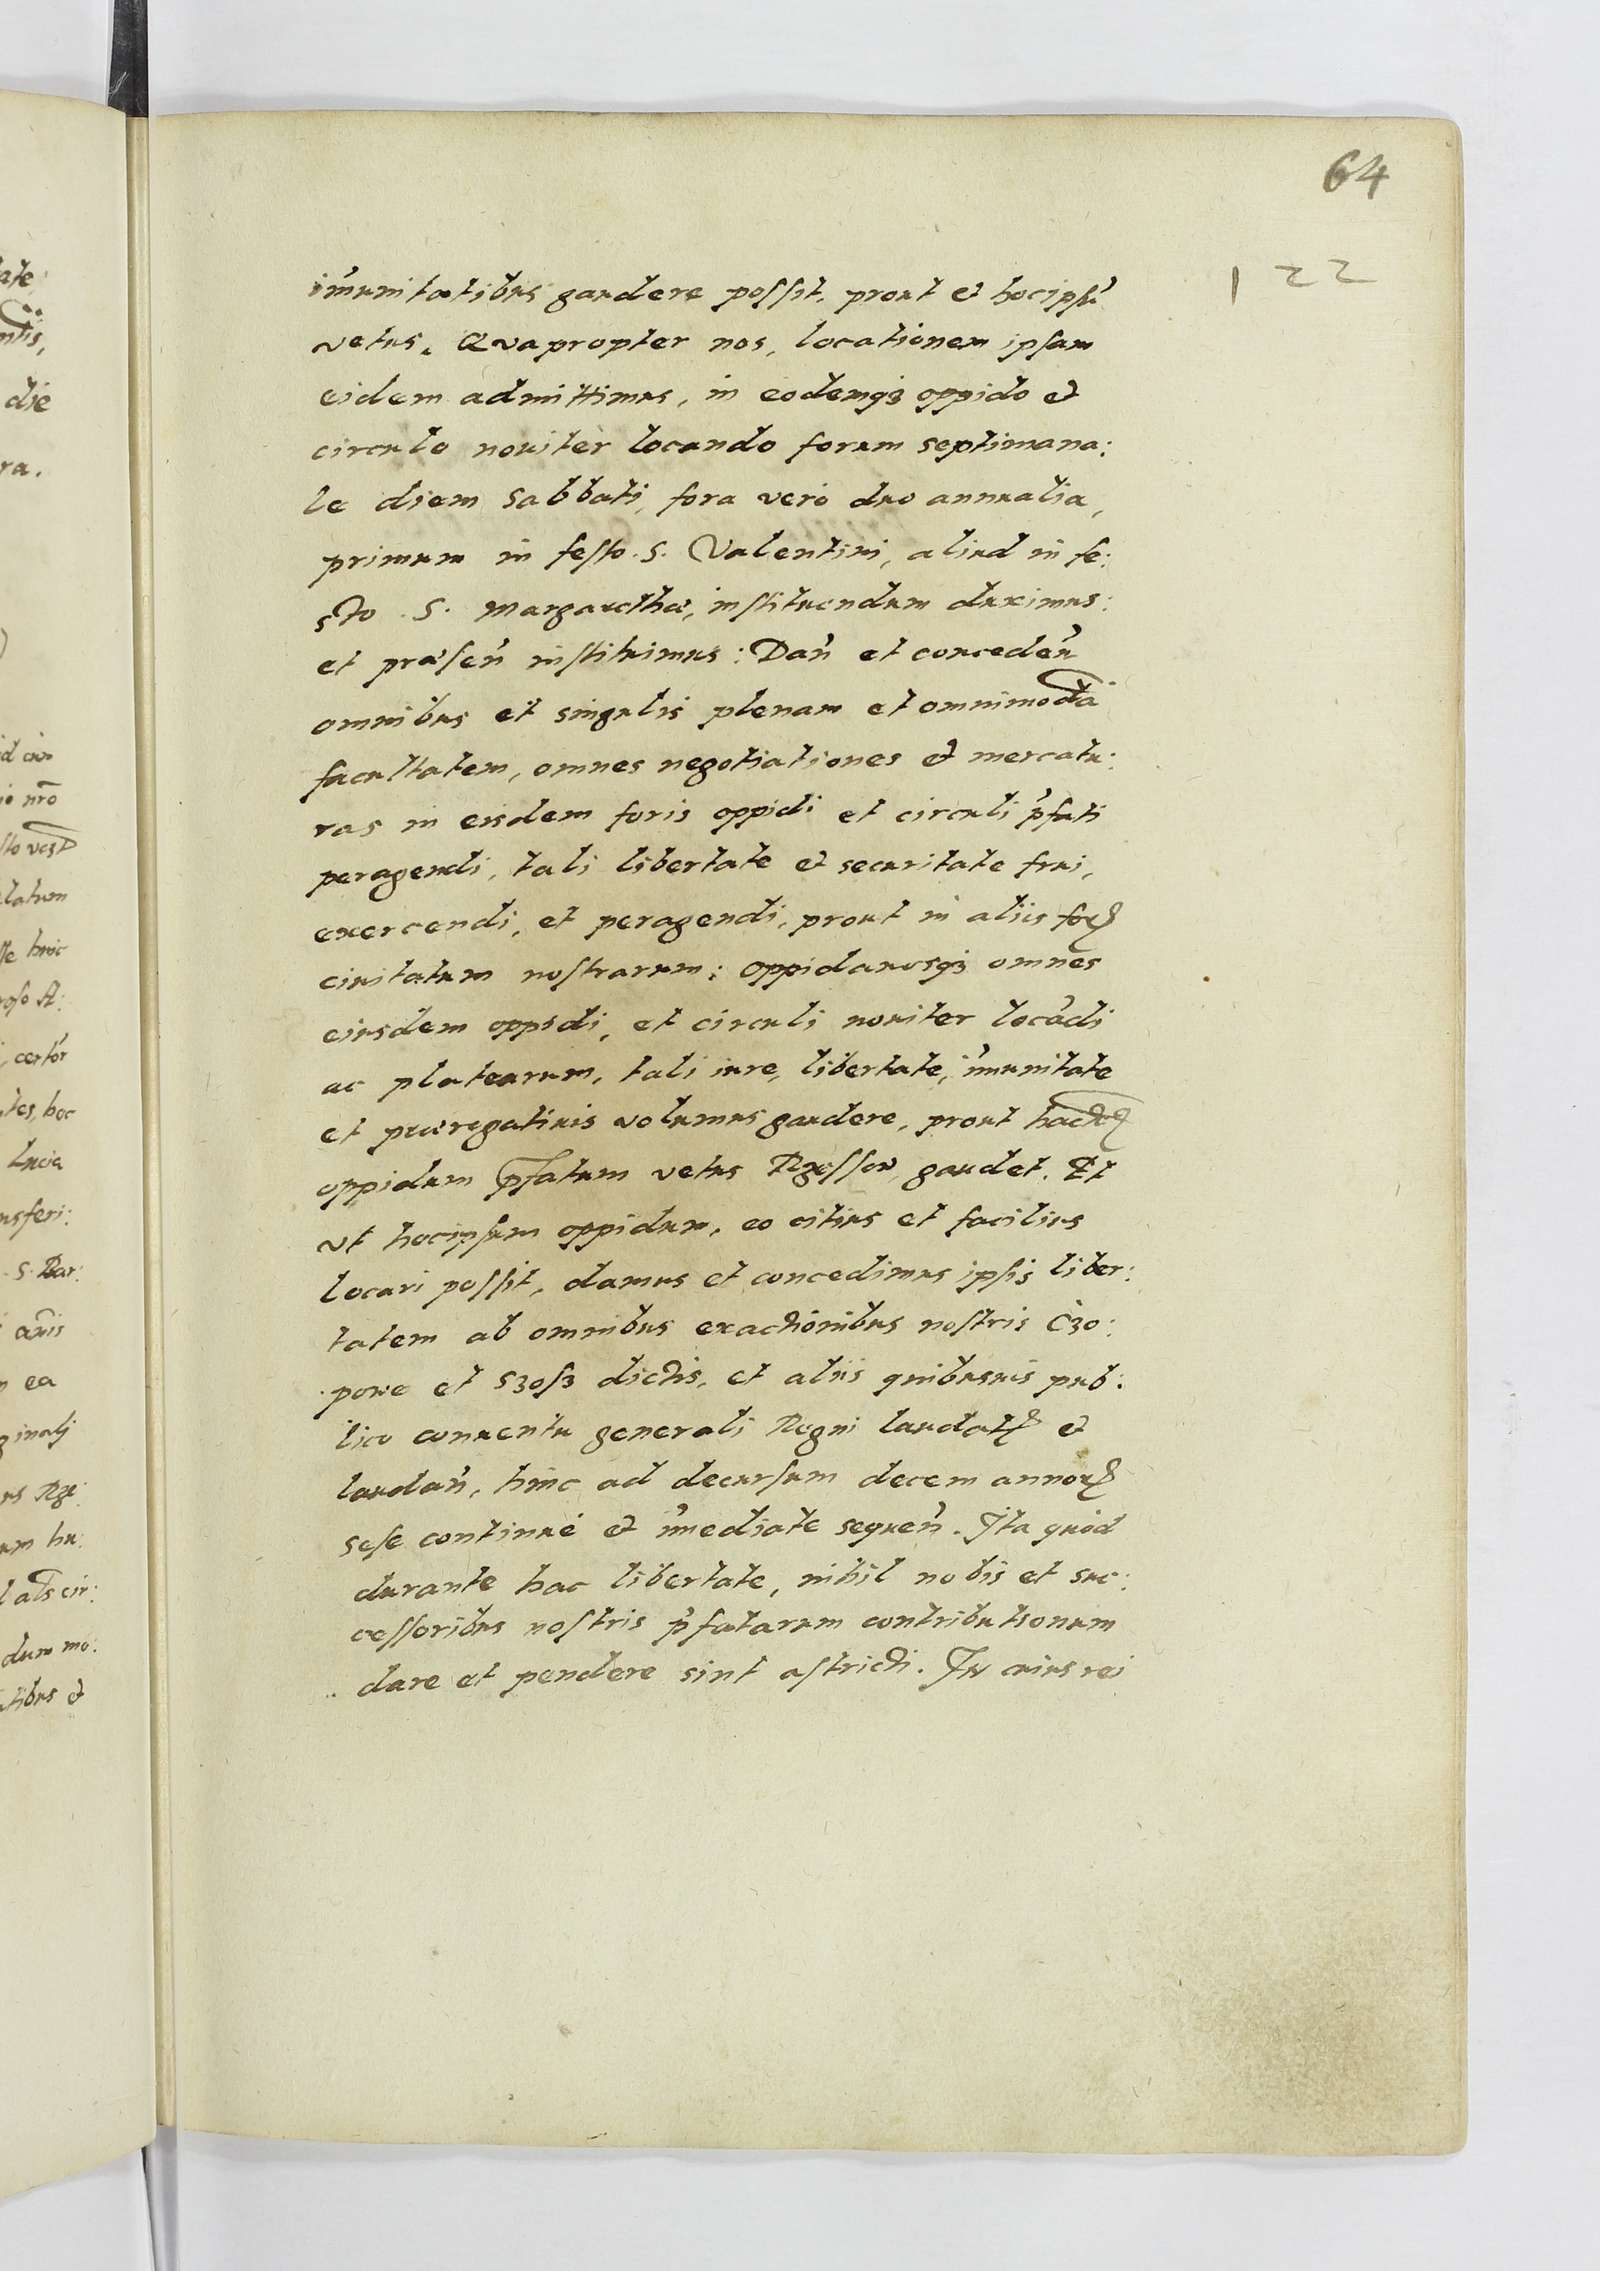 64
122
im̃unitatibus gaudere possit, prout et hocipsũ
vetus. Qvapropter nos, locationem ipsam
eidem admittimus, in eodemq3 oppido et
circulo nouiter locando forum septimana:
le diem sabbati, fora vero duo annualia,
primum in festo. S. Valentini, aliud in fe:
sto S. Margarethæ, instituendum duximus:
et præseñ instituimus: Dañ et concedeñ
omnibus et singulis plenam et omnimodã
facultatem, omnes negotiationes et mercatu:
ras in eisdem foris oppidi et circuli p̃fati
peragendi, tali libertate et securitate frui,
exercendi, et peragendi, prout in aliis foꝝ
ciuitatum nostrarum: oppidanosq3 omnes
eiusdem oppidi, et circuli nouiter locãdi
ac platearum, tali iure, libertate, im̃unitate
et prærogatiuis volumus gaudere, prout hacteꝝ
oppidum p̃fatum vetus Rzessow gaudet. Et
vt hocipsum oppidum, eo citius et facilius
locari possit, damus et concedimus ipsis liber:
tatem ab omnibus exactionibus nostris Czo:
powe et szosz dictis, et aliis quibusuis pub:
lico conuentu generali Regni laudatꝝ et
laudañ, hinc ad decursum decem annoꝝ
sese continuè et im̃ediate sequeñ. Ita quod
durante hac libertate, nihil nobis et suc:
cessoribus nostris p̃fatarum contributionum
dare et pendere sint astricti. In cuius rei